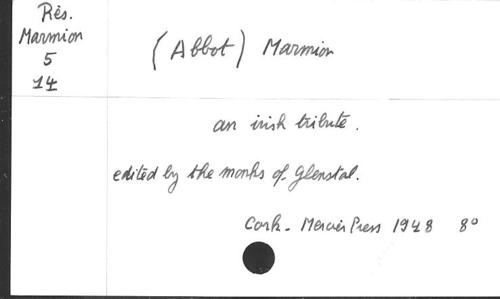 Rés.
Marmion
5
14
(Abbot) Marmion
an irish tribute.
edited by the monks of Glenstal.
Cork - Mercier Press 1948 8°